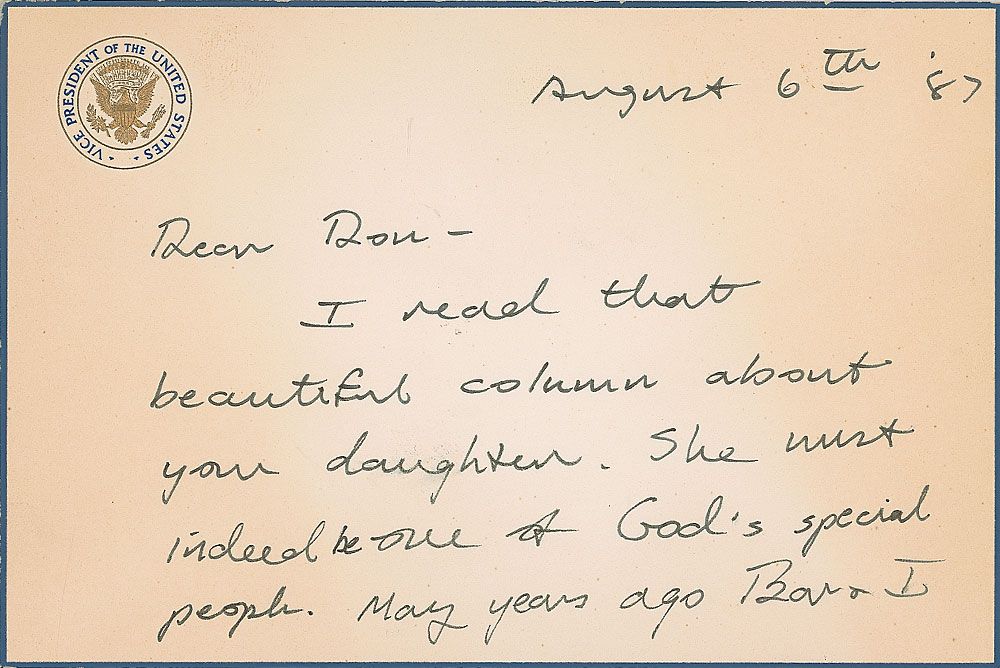 VICE PRESIDENT OF THE UNITED STATES
August 6th '87
Dear Don -
I read that
beautiful column about
your daughter. She must
indeed be one of God's special
people. May years ago Bar & I